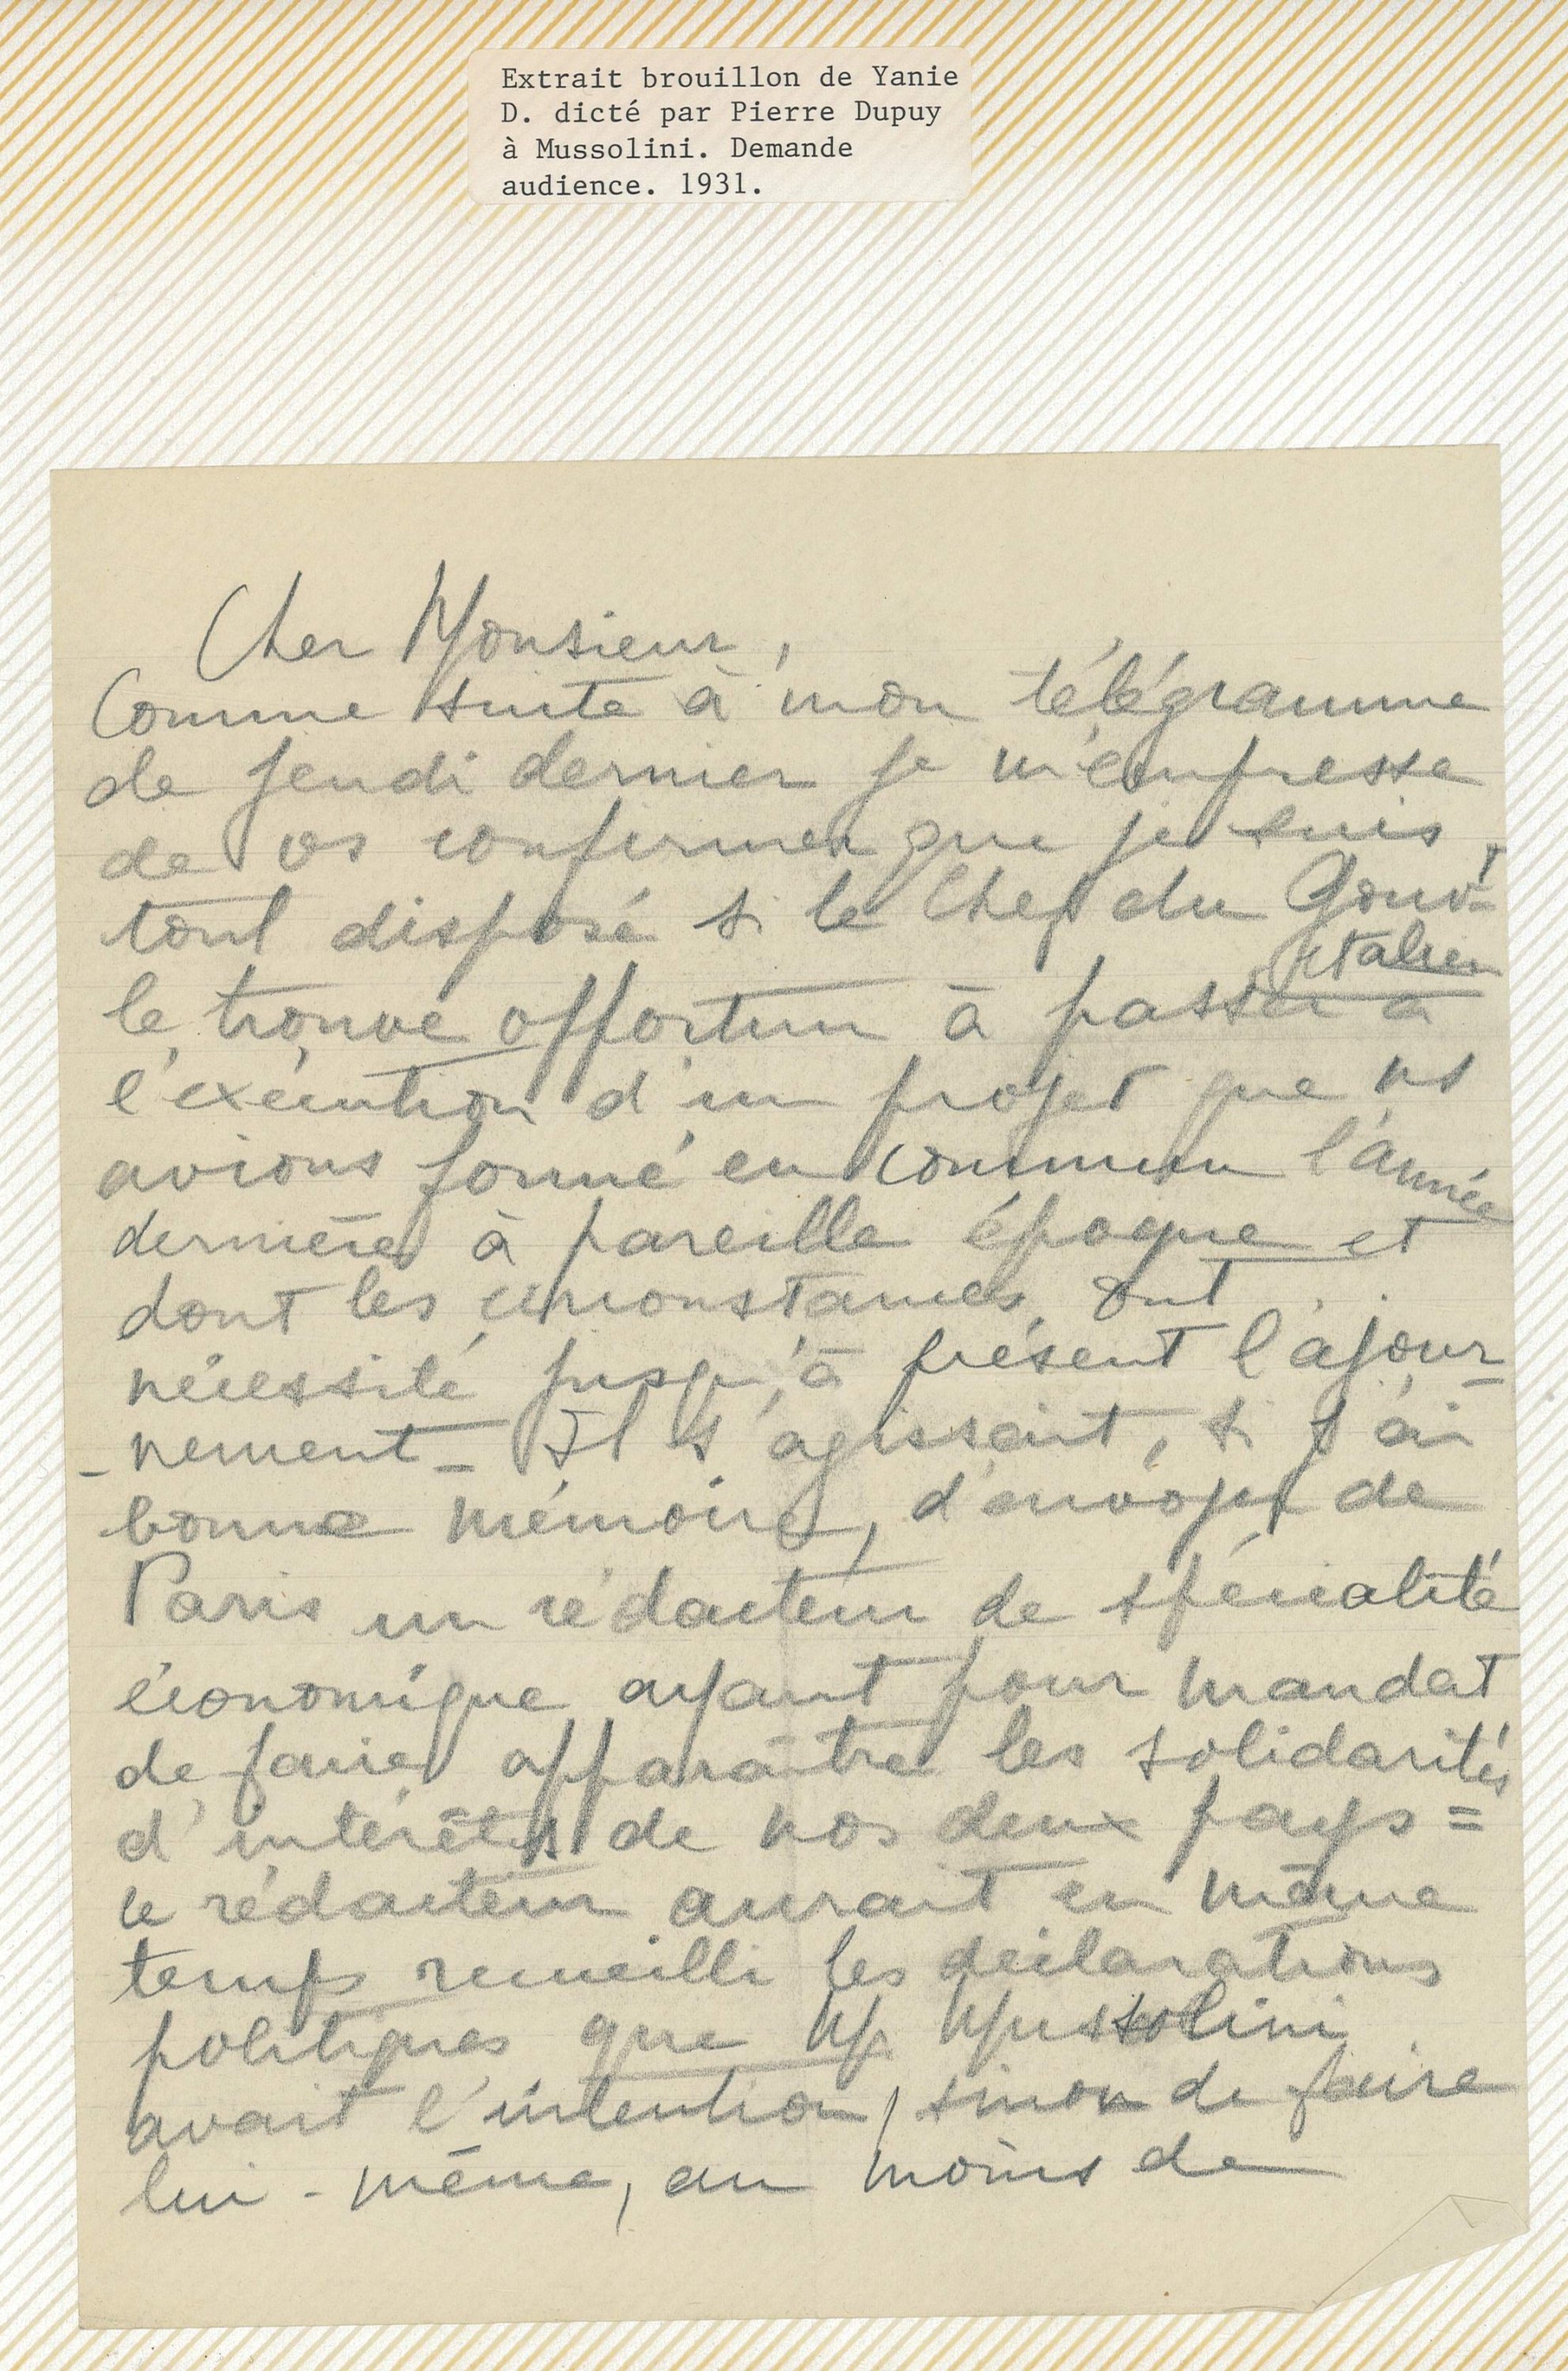 Extrait brouillon de Yanie
D. dicté par Pierre Dupuy
à Mussolini. Demande
audience. 1931.
Cher Monsieur,
Comme suite à mon télégramme
de jeudi dernier je m'empresse
de vs confirmer que je suis
tout disposé si le Chef du Gouvt
italien
le trouve opportun à passer à
l'exécution d'un projet que ns
avions formé en commun l'année
dernière à pareille époque et
dont les circonstances ont
nécessité jusqu'à présent l'ajour-
-nement - Il s'agissait, si j'ai
bonne mémoire, d'envoyer de
Paris un rédacteur de spécialité
économique ayant pour mandat
de faire apparaître les solidarités
d'intérêts de nos deux pays =
le rédacteur aurait en même
temps recueilli les déclarations
politiques que M. Mussolini
avait l'intention, sinon de faire
lui-même, au moins de